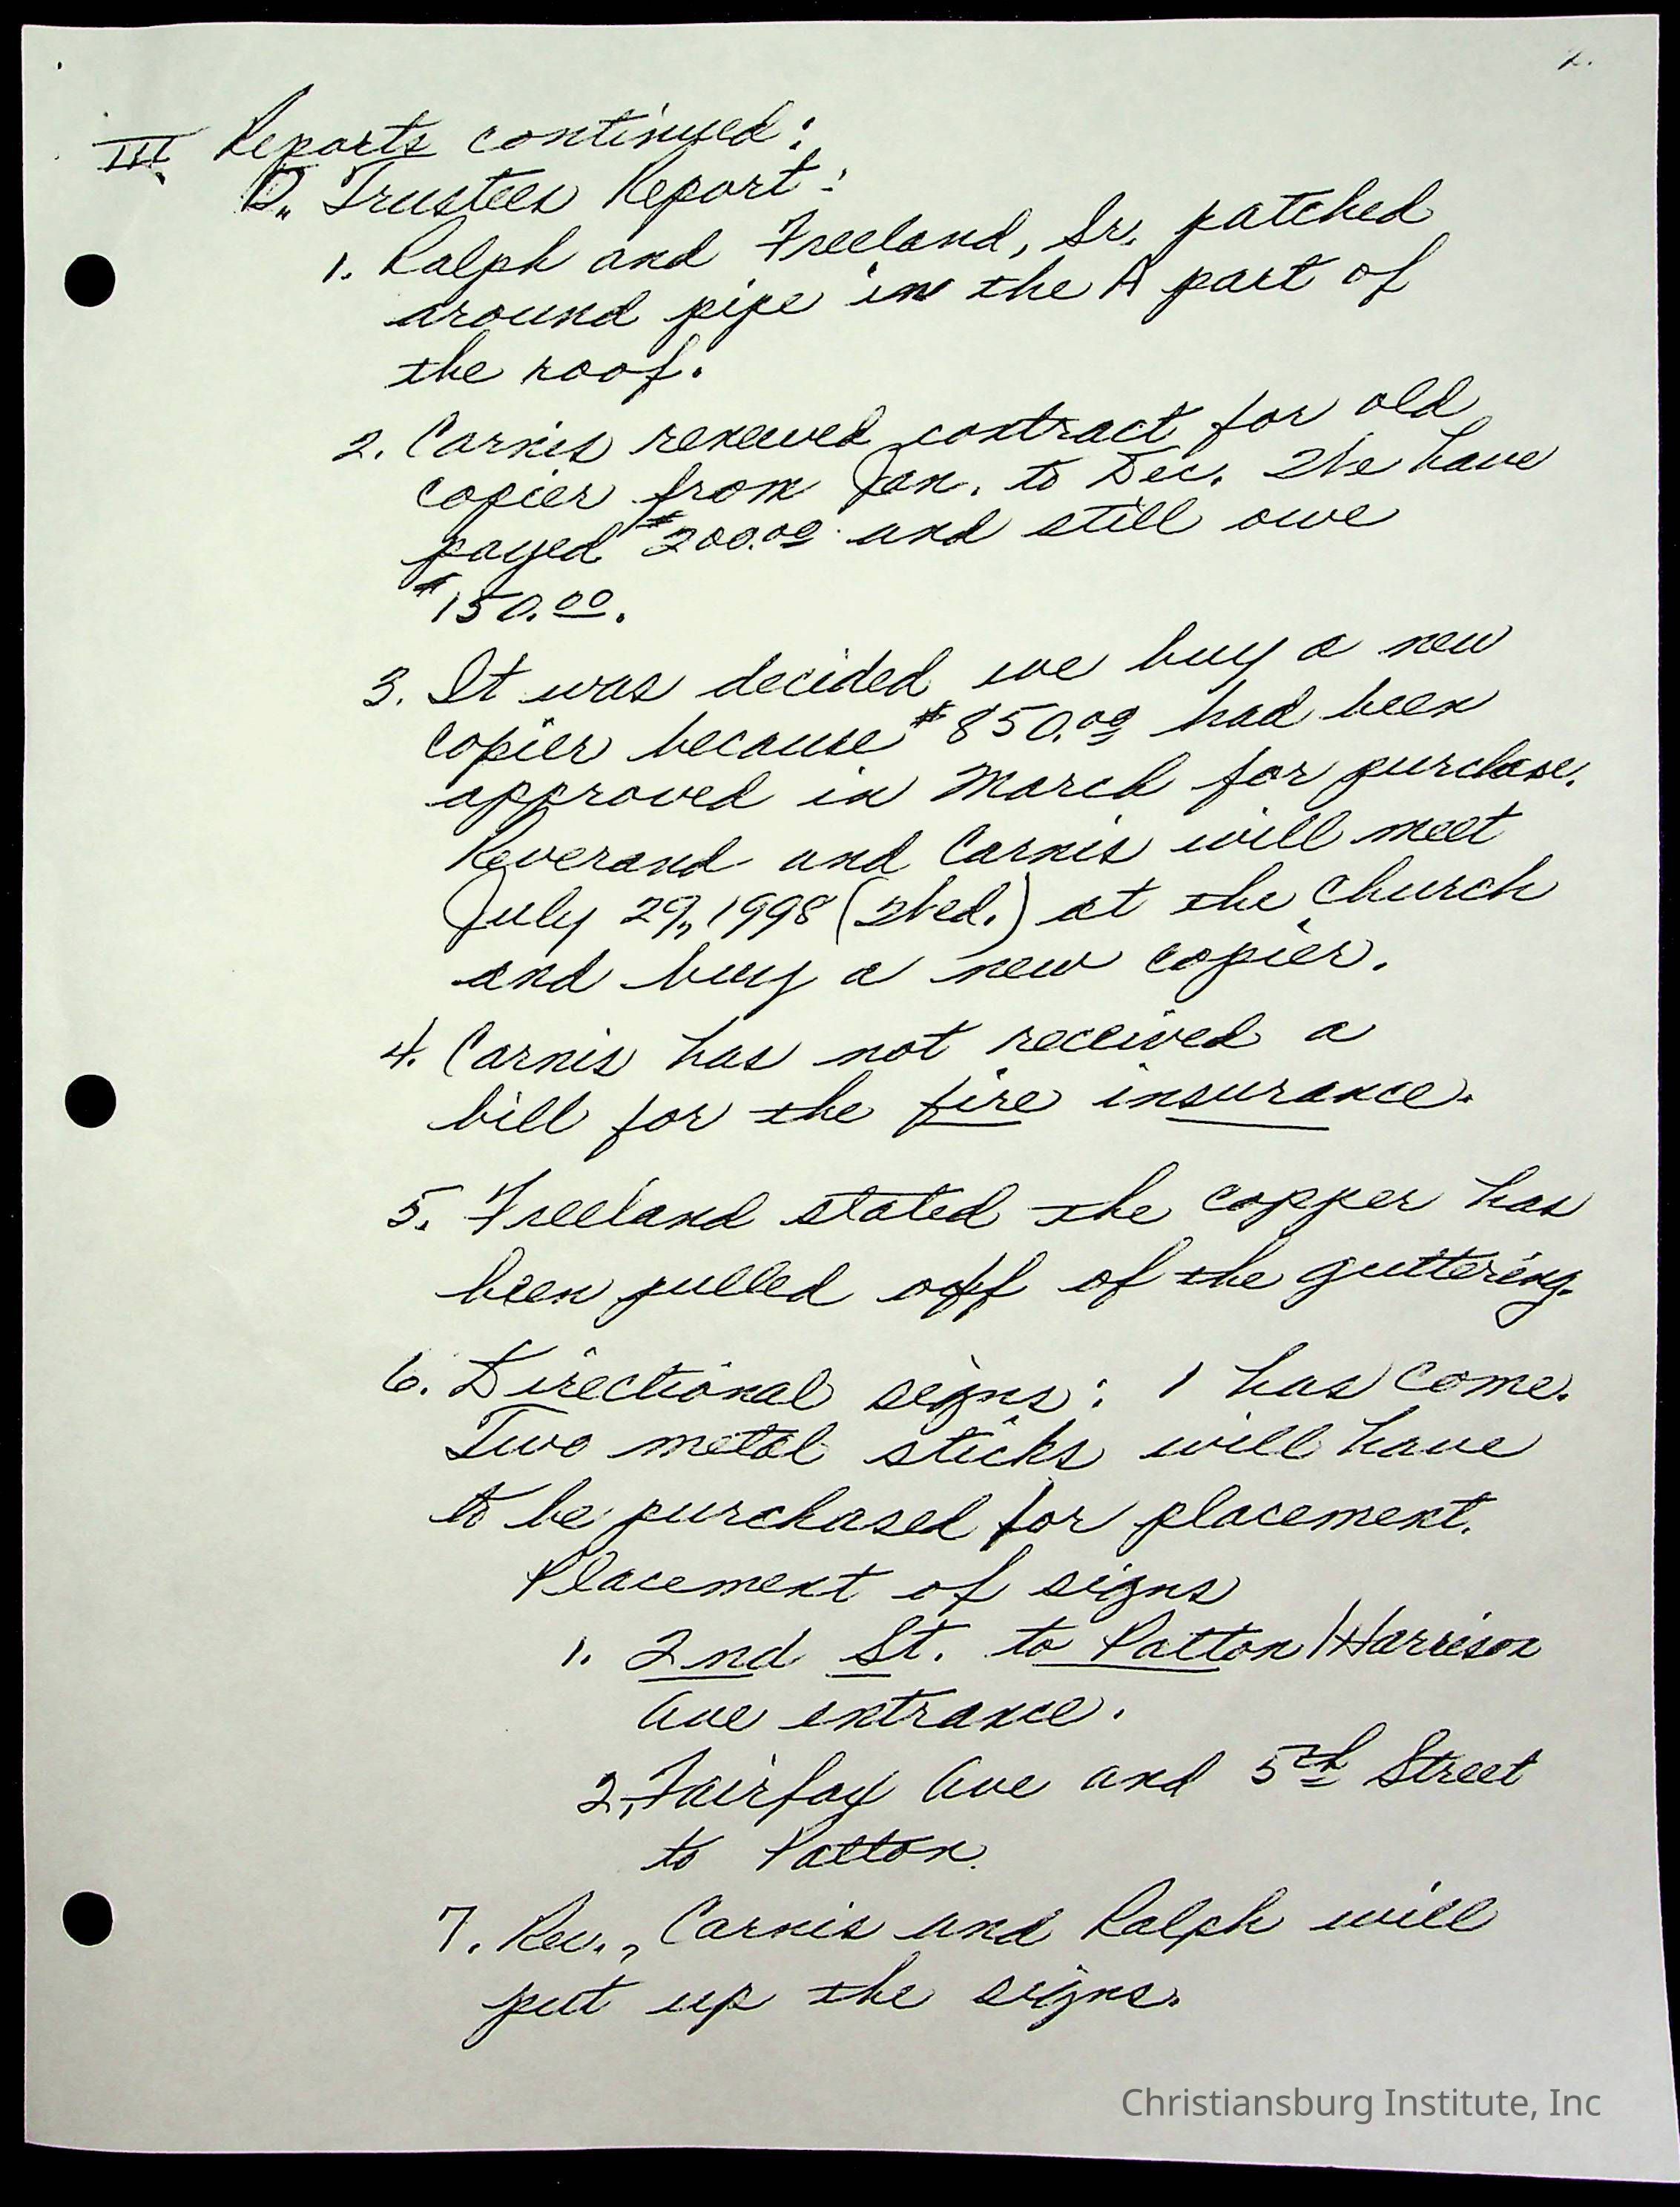 2.
III. Reports continued:
D. Trustees Report:
1. Ralph and Freeland, Sr. patched
around pipe in the A part of
the roof.
2. Carnis renewed contract for old
copier from Jan. to Dec. We have
payed $200.00 and still owe
$150.00.
3. It was decided we buy a new
copier because $850.00 had been
approved in March for purchase.
Reverand and Carnis will meet
July 29, 1998 (Wed.) at the church
and buy a new copier.
4. Carnis has not received a
bill for the fire insurance.
5. Freeland stated the copper has
been pulled off of the guttering.
6. Directional signs: 1 has come.
Two metal sticks will have
to be purchased for placement.
Placement of signs
1. 2nd St. to Patton/Harrison
Ave entrance.
2. Fairfax Ave and 5th Street
to Patton.
7. Rev., Carnis and Ralph will
put up the signs.
Christiansburg Institute, Inc